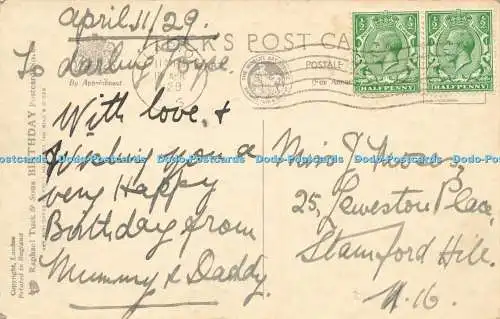 april 11/29.
TUCK'S POST CARD
By Appointment
POSTAGE
HALFPENNY
HALFPENNY
To darling Joyce.
With love &
Wishing you a
very Happy
Birthday from
Mummy & Daddy.
Miss J. Moses
25, Leweston Place
Stamford Hill.
N. 16.
Raphael Tuck & Sons BIRTHDAY Postcard
Copyright, London
Printed in England
Dodo-Postcards Dodo-Postcards Dodo-Postcards Dodo-Postcards